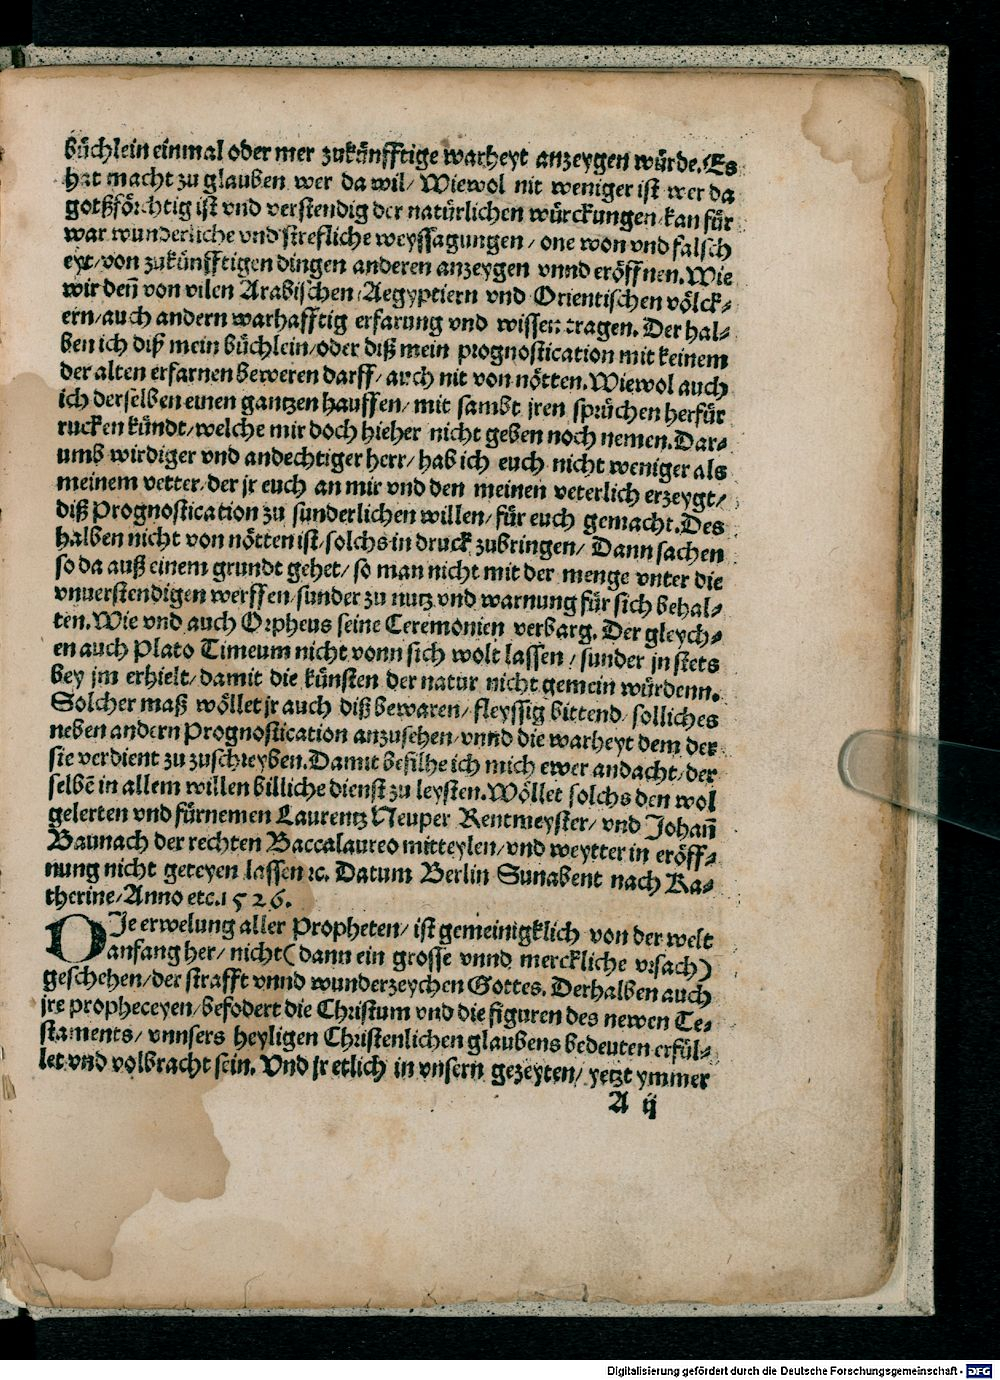 büchlein einmal oder mer zukünfftige warheyt anzeygen würde. Es
hat macht zu glauben wer da wil/ Wiewol nit weniger ist wer da
gotßförchtig ist vnd verstendig der natürlichen würckungen/ kan für
war wunderliche vnd strefliche weyssagungen/ one won vnd falsch
eyt/ von zukünfftigen dingen anderen anzeygen vnnd eröffnen. Wie
wir deñ von vilen Arabischen/ Aegyptiern vnd Orientischen völck⸗
ern/ auch andern warhafftig erfarung vnd wissen tragen. Der hal⸗
ben ich diß mein büchlein/ oder diß mein prognostication mit keinem
der alten erfarnen beweren darff/ auch nit von nötten. Wiewol auch
ich derselben einen gantzen hauffen/ mit sambt jren sprüchen herfür
rucken kündt/ welche mir doch hieher nicht geben noch nemen. Dar⸗
umb wirdiger vnd andechtiger herr/ hab ich euch nicht weniger als
meinem vetter/ der jr euch an mir vnd den meinen veterlich erzeygt/
diß Prognostication zu sunderlichen willen/ für euch gemacht. Des
halben nicht von nötten ist/ solchs in druck zubringen/ Dann sachen
so da auß einem grundt gehet/ so man nicht mit der menge vnter die
vnuerstendigen werffen/ sunder zu nutz vnd warnung für sich behal⸗
ten. Wie vnd auch Orpheus seine Ceremonien verbarg. Der gleych⸗
en auch Plato Timeum nicht vonn sich wolt lassen/ sunder jn stets
bey jm erhielt/ damit die künsten der natur nicht gemein würdenn.
Solcher maß wöllet jr auch diß bewaren/ fleyssig bittend/ solliches
neben andern Prognostication anzusehen/ vnnd die warheyt dem der
sie verdient zu zuschreyben. Damit befilhe ich mich ewer andacht/ der
selbẽ in allem willen billiche dienst zu leysten. Wöllet solchs den wol
gelerten vnd fürnemen Laurentz Neuper Rentmeyster/ vnd Johañ
Baunach der rechten Baccalaureo mitteylen/ vnd weytter in eröff⸗
nung nicht geteyen lassen ꝛc. Datum Berlin Sunabent nach Ka⸗
therine/ Anno etc. 1526.
DIe erwelung aller Propheten/ ist gemeinigklich von der welt
anfang her/ nicht (dann ein grosse vnnd merckliche vrsach)
geschehen/ der strafft vnnd wunderzeychen Gottes. Derhalben auch
jre propheceyen/ befodert die Christum vnd die figuren des newen Te⸗
staments/ vnnsers heyligen Christenlichen glaubens bedeuten erfül⸗
let vnd volbracht sein. Vnd jr etlich in vnsern gezeyten/ yetzt ymmer
A ij
Digitalisierung gefördert durch die Deutsche Forschungsgemeinschaft - DFG